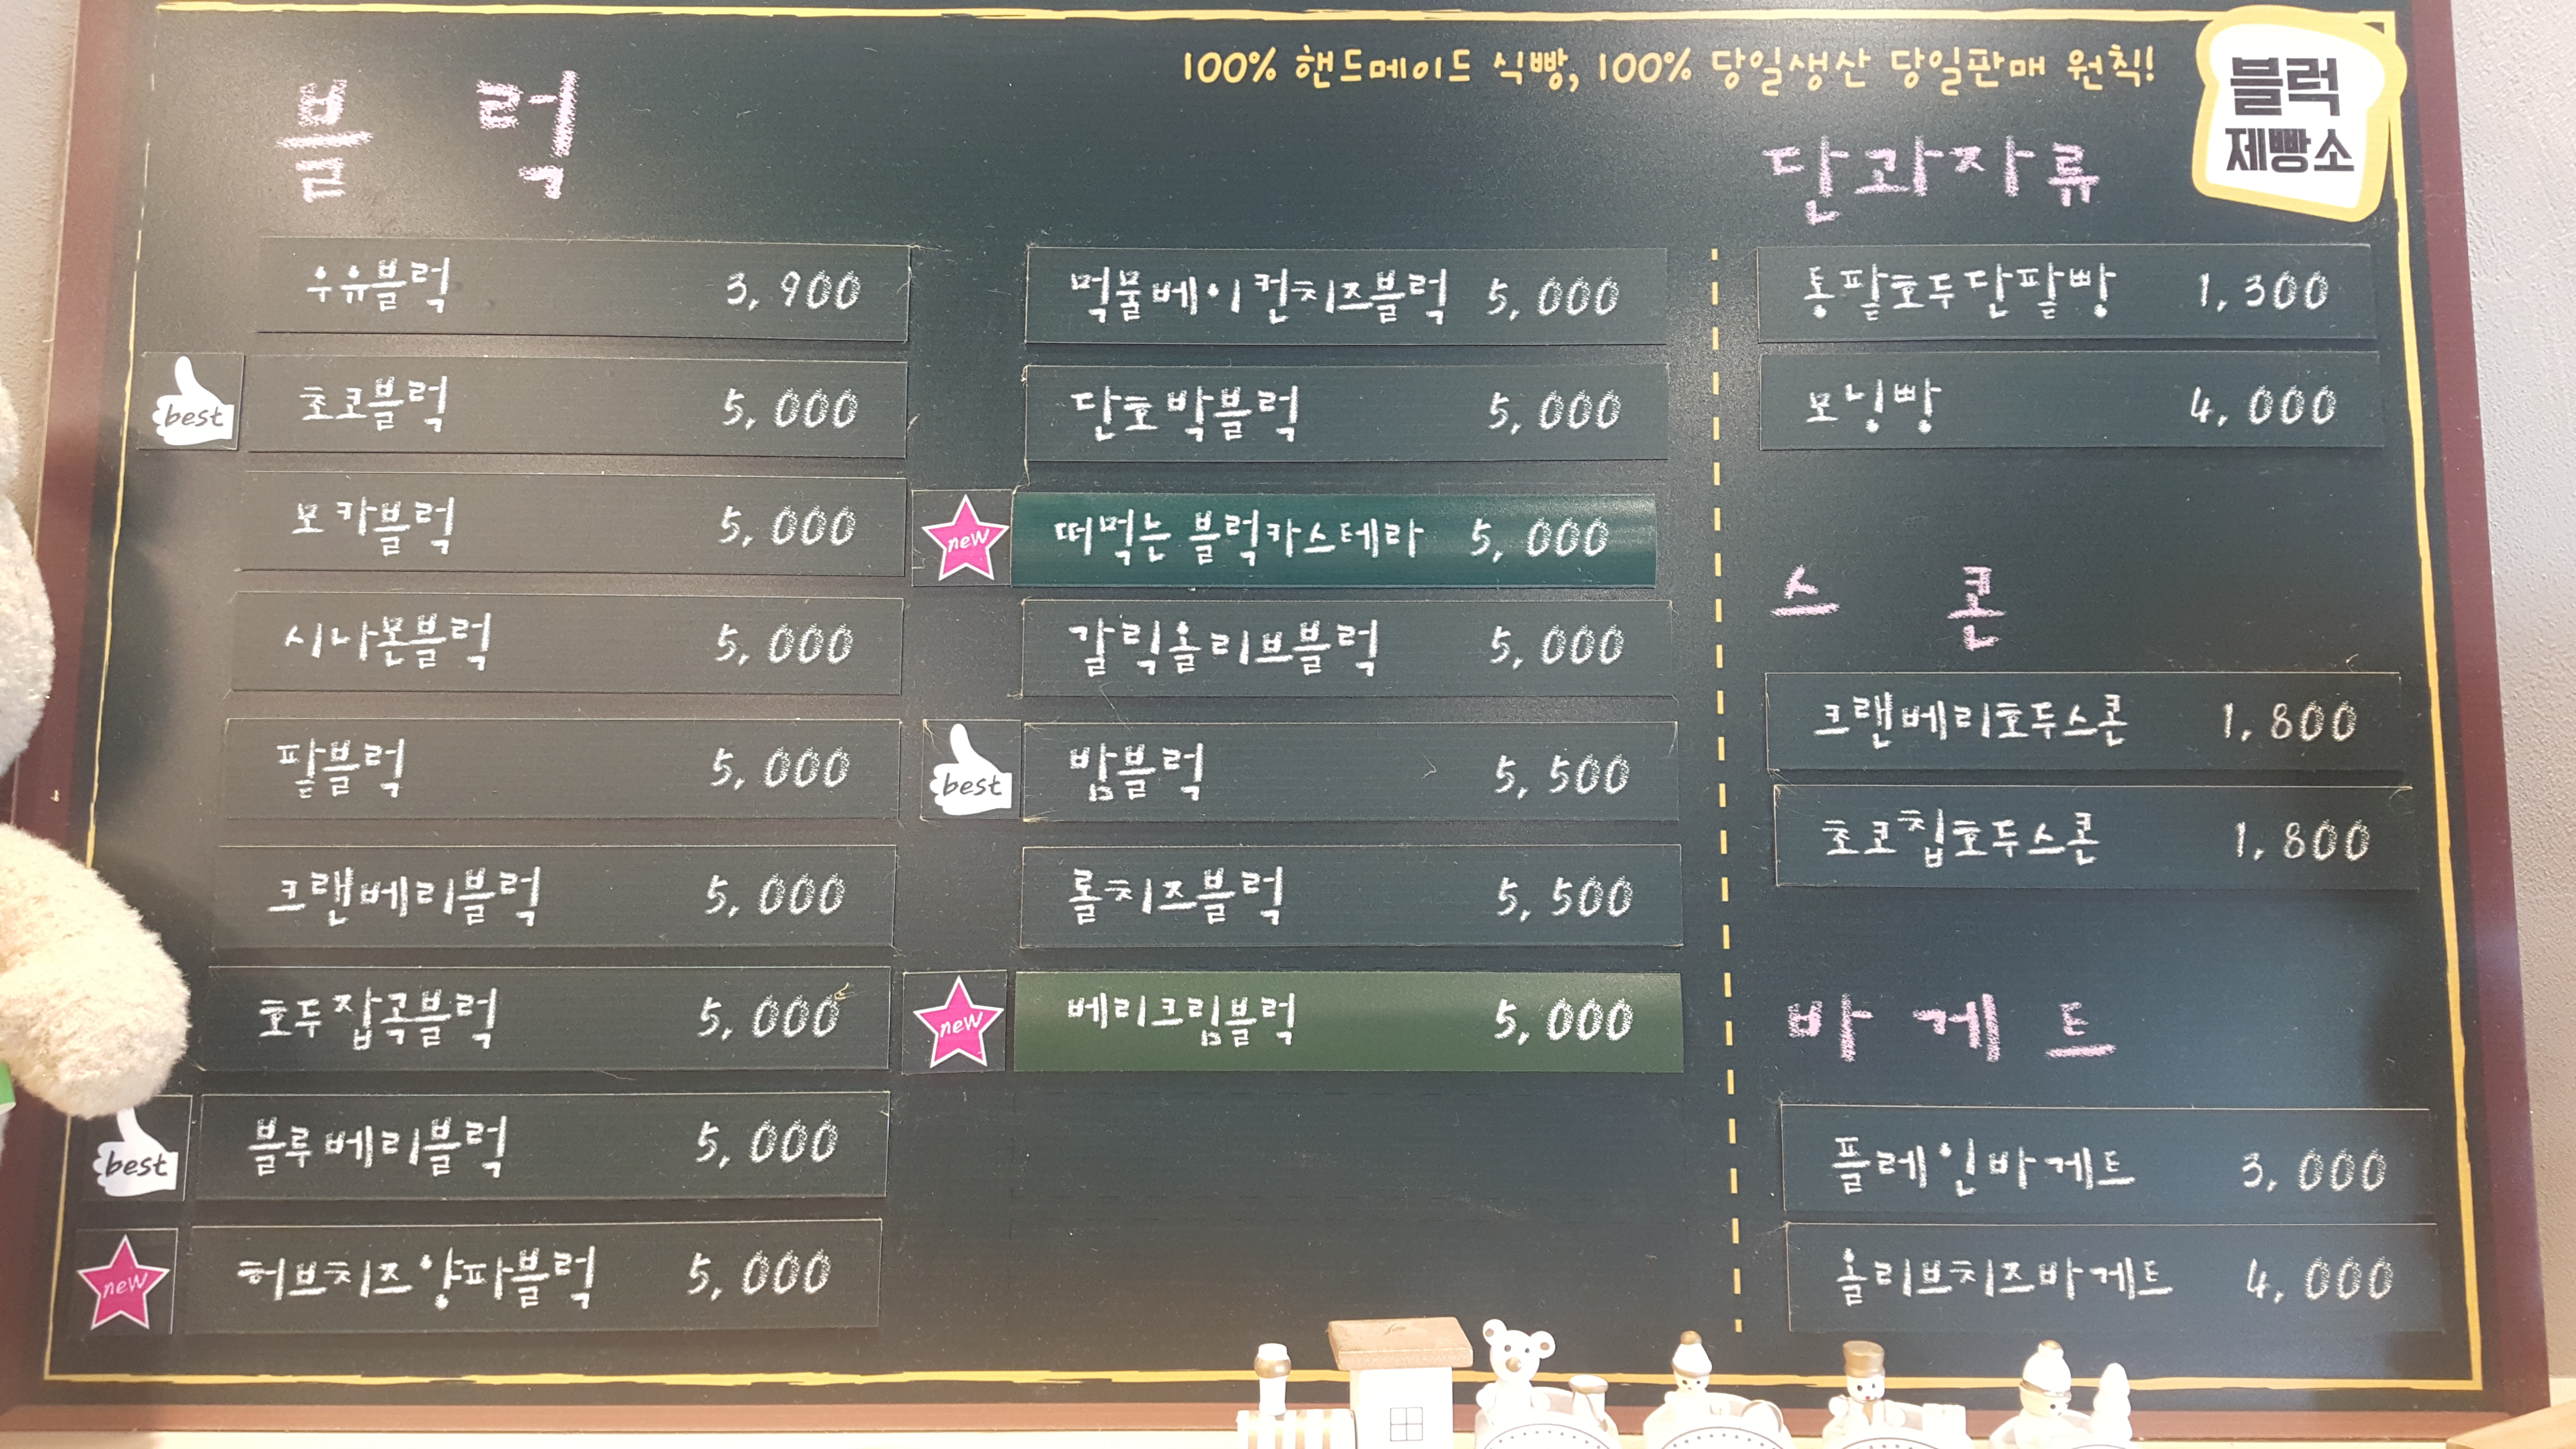 100% 핸드메이드 식빵, 100% 당일생산 당일판매 원칙!
블럭
제빵소
블 럭
우유블럭 3,900
best 초코블럭 5,000
모카블럭 5,000
시나몬블럭 5,000
팥블럭 5,000
크랜베리블럭 5,000
호두잡곡블럭 5,000
best 블루베리블럭 5,000
new 허브치즈양파블럭 5,000
먹물베이컨치즈블럭 5,000
단호박블럭 5,000
new 떠먹는 블럭카스테라 5,000
갈릭올리브블럭 5,000
best 밤블럭 5,500
롤치즈블럭 5,500
new 베리크림블럭 5,000
단과자류
통팥호두단팥빵 1,300
모닝빵 4,000
스 콘
크랜베리호두스콘 1,800
초코칩호두스콘 1,800
바 게 트
플레인바게트 3,000
올리브치즈바게트 4,000